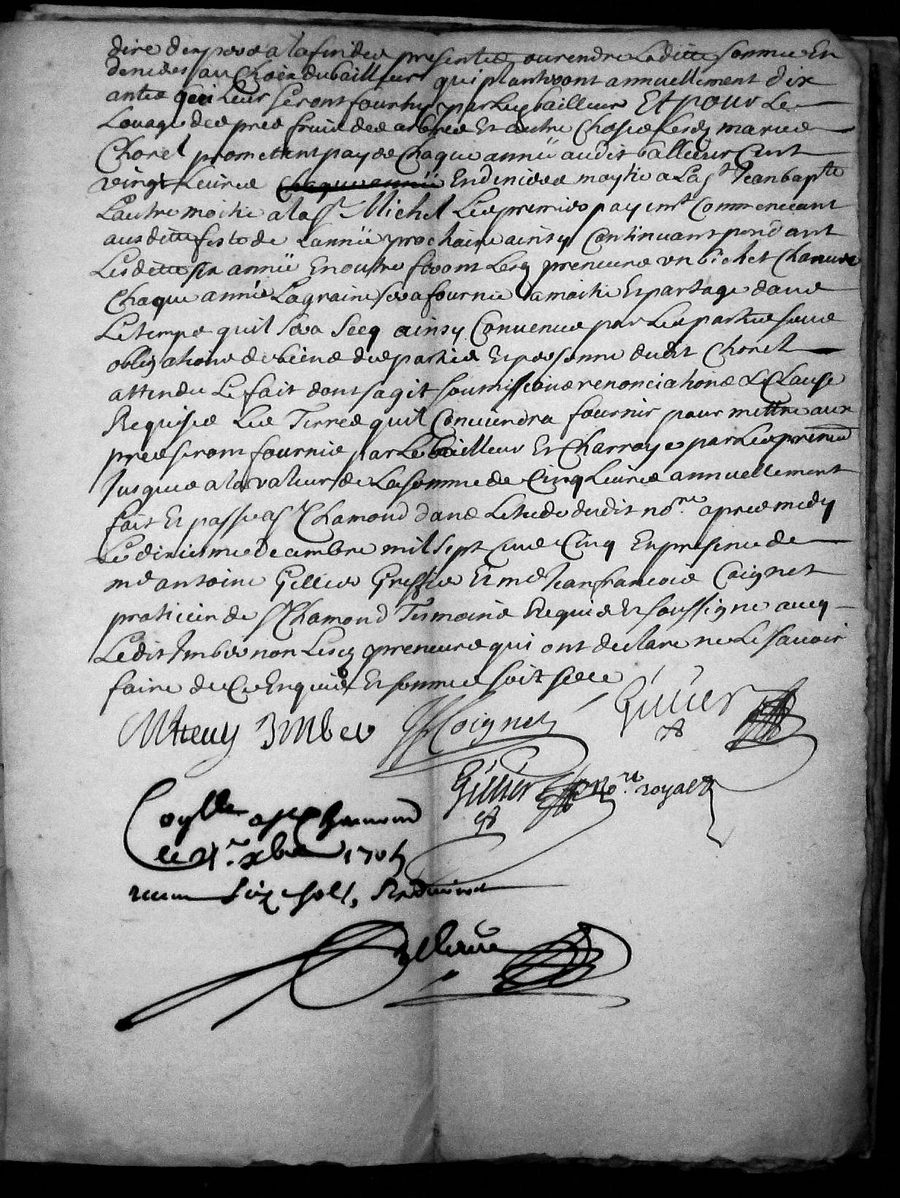 dire d'expers a la fin des presentes ou rendre Laditte somme En
denieres au Choix du bailleur qui planteront annuellement dix
antes qui Leur seront fournis par Led bailleur Et pour Le
Louage des pres fruit des arbres Et autre Choses Lesd mariés
Chorel promettent payer Chaque année audit bailleur Cent
vingt Livres En deniers moytié a La St Jean bapte
Lautre moitié a la St Michel Les premiers paymt Commenceant
ausdittes festes de Lannée prochaine ainsy Continuant pendant
Lesdittes six année En outre feront Lesd preneurs un bichet Chanure
Chaque année La graine sera fournie La moitié Et partagé dans
Le temps quil sera Secq ainsy Convenus par Les parties sous
obligations de biens des parties Et personne dudit Chorel
attendu Le fait dont sagit soumissions renonciations & Clause
Requises Les Terres quil Conviendra fournir pour mettre aux
pres seront fournie par Le bailleur Et Charroyé par Les preneurs
Jusques a la valleur de La somme de Cinq Livres annuellement
fait Et passé a St Chamond dans Lestude dudit nore apres midy
Le dixiesme decembre mil sept cens Cinq En presence de
me antoine Gillier Greffier Et me Jean francois Coignet
praticien de St Chamond Tesmoins Requis Et soussigné avecq
Ledit Imber non Lesd preneurs qui ont declaré ne Le scavoir
faire de Ce Enquis Et sommés soit scelé
Mtieu Imber Coignet Gillier
Gillier nore royal
Con lle a St Chamond
le 21e xbre 1705
receu Six sols,